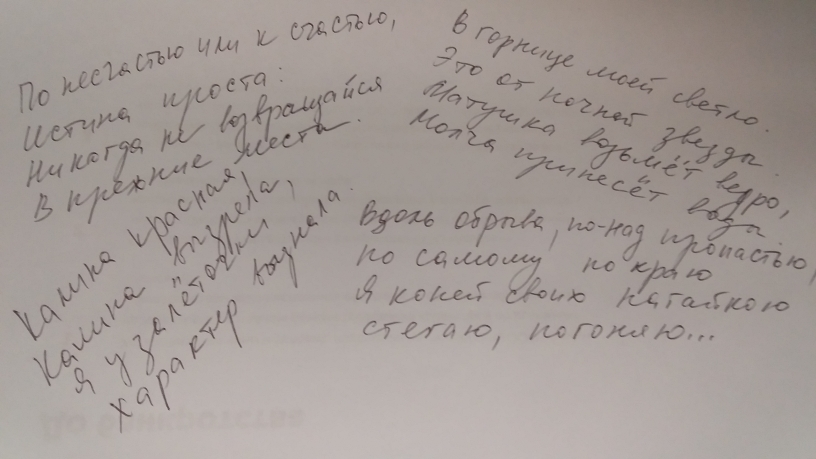 По несчастью или к счастью,
Истина проста:
Никогда не возвращайся
В прежние места.
В горнице моей светло.
Это от ночной звезды.
Матушка возьмёт ведро,
Молча принесёт воды
Калина красная,
Калина вызрела,
Я у залёточки
Характер вызнала.
Вдоль обрыва, по-над пропастью,
по самому по краю
Я коней своих нагайкою
стегаю, погоняю...